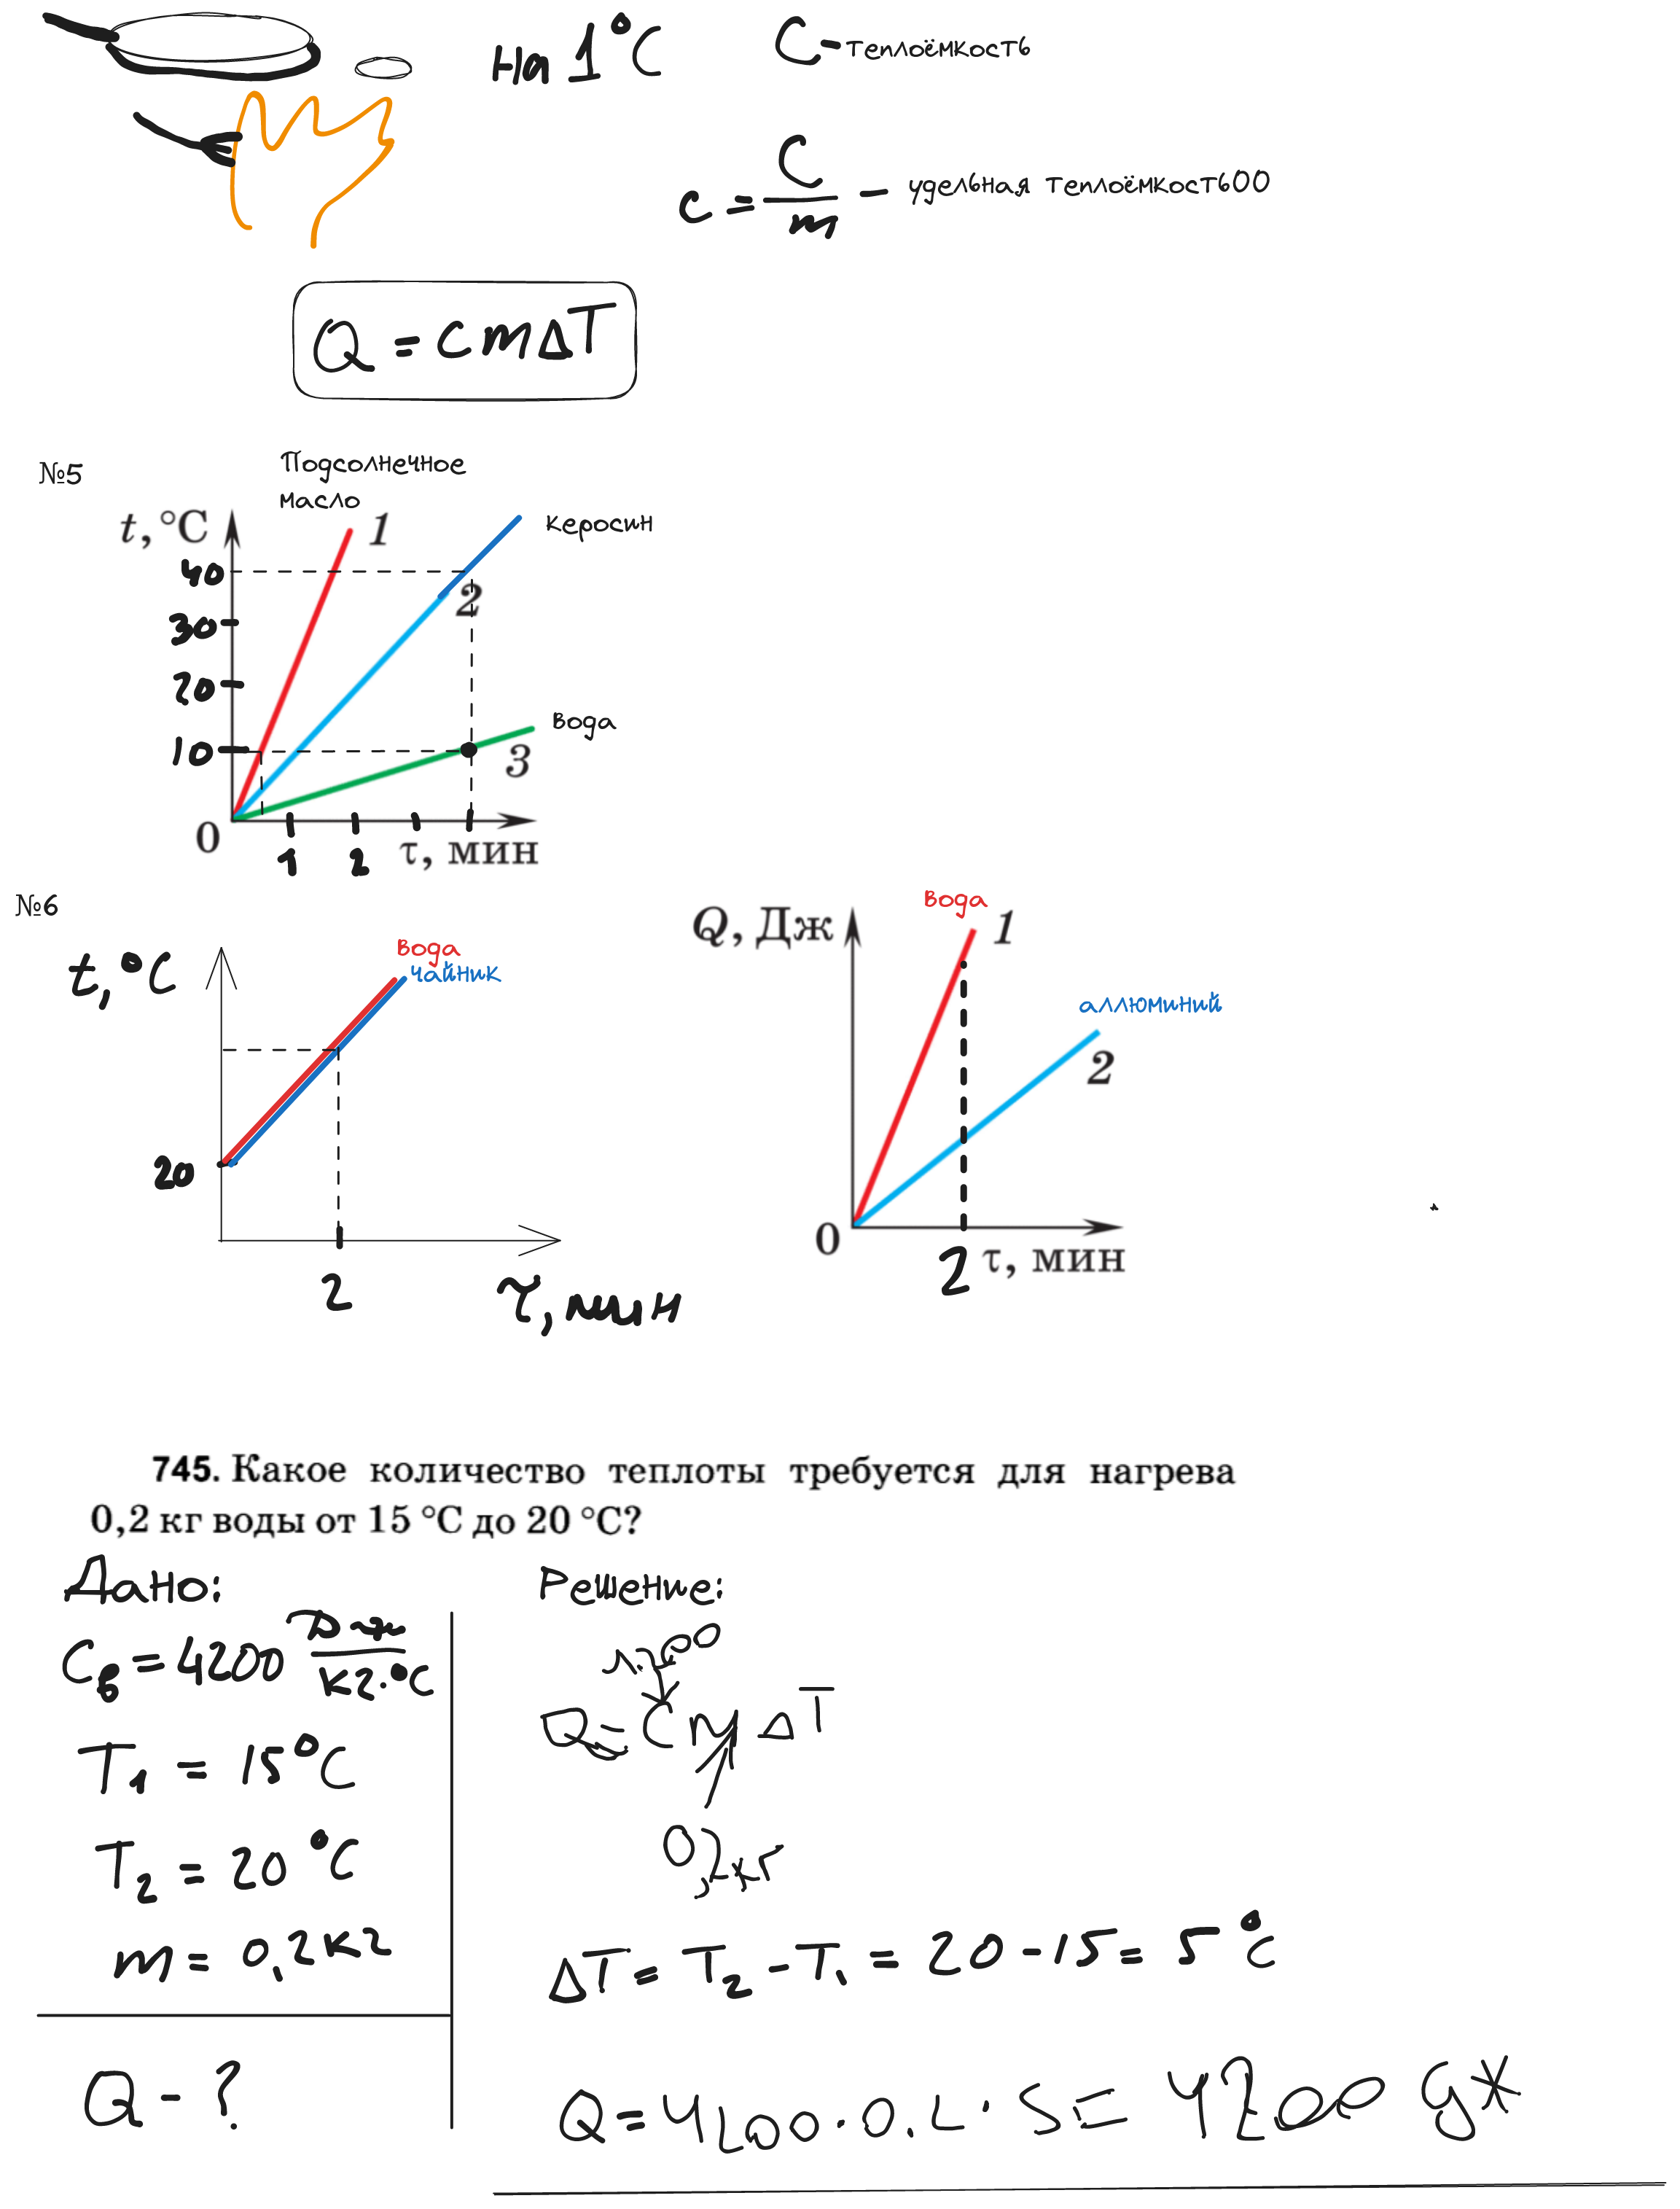 на 1°C
C - теплоёмкость
c = C/m - удельная теплоёмкостьOO
Q = cm∆T
№5
Подсолнечное
масло
t, °C
1
керосин
40
2
30
20
вода
10
3
0
1
2
τ, мин
№6
t, °C
вода
чайник
20
2
τ, мин
Q, Дж
вода
1
аллюминий
2
0
2
τ, мин
745. Какое количество теплоты требуется для нагрева
0,2 кг воды от 15 °C до 20 °C?
Дано:
Cв = 4200 Дж/кг·°C
T1 = 15°C
T2 = 20°C
m = 0,2 кг
Q - ?
Решение:
Q = Cm∆T
0,2кг
∆T = T2 - T1 = 20 - 15 = 5°C
Q = 4200 · 0.2 · 5 = 4200 дж